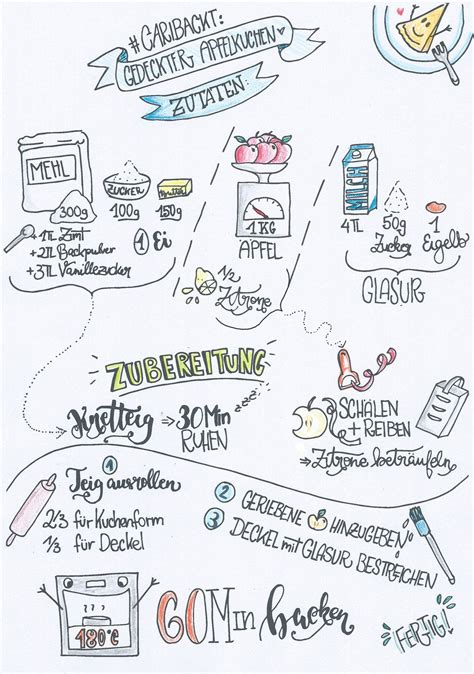 #CARIBACKT:
GEDECKTER APFELKUCHEN
ZUTATEN:
MEHL
300g
ZUCKER
100g
BUTTER
150g
+1TL Zimt
+2TL Backpulver
+3TL Vanillezucker
1 Ei
1KG
ÄPFEL
1/2
Zitrone
MILCH
4TL
50g
Zucker
1
Eigelb
GLASUR
ZUBEREITUNG
Knetteig ⇒ 30Min
RUHEN
zzzz
SCHÄLEN
+ REIBEN
⇒ Zitrone beträufeln
1
Teig ausrollen
2/3 für Kuchenform
1/3 für Deckel
2 GERIEBENE HINZUGEBEN
3 DECKEL mit GLASUR BESTREICHEN
180°C
60Min backen
FERTIG!